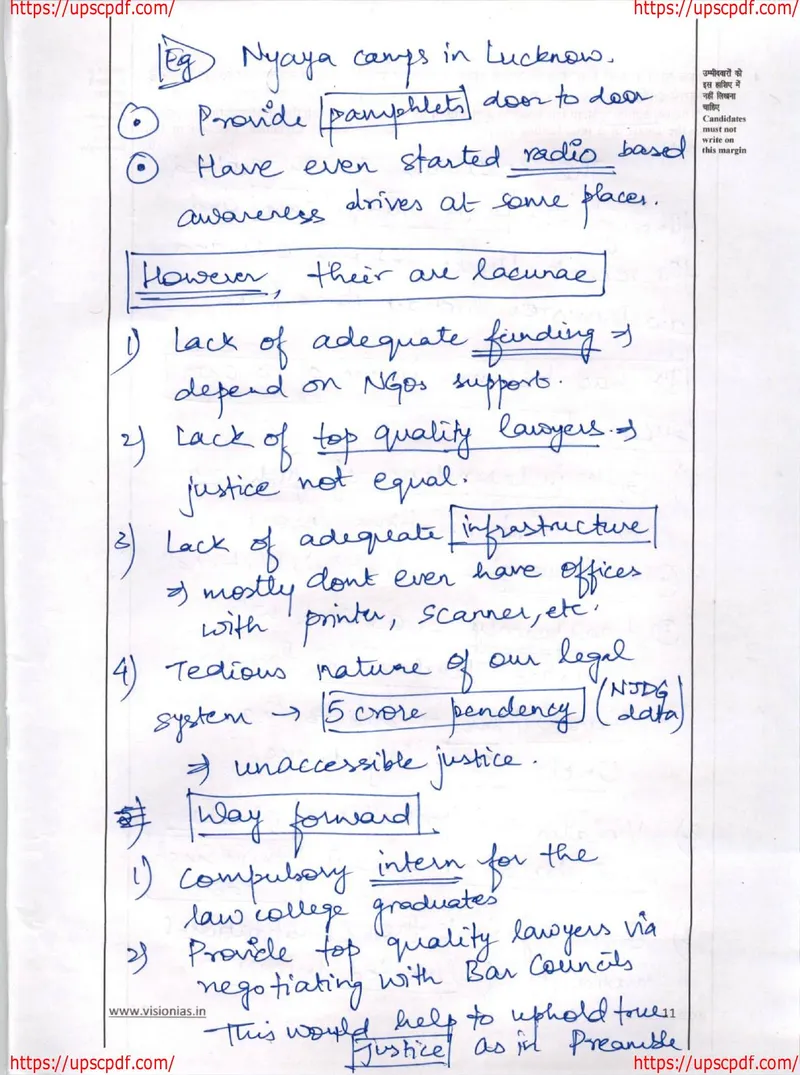 https://upscpdf.com/ https://upscpdf.com/
Eg Nyaya camps in Lucknow.
Provide pamphlets door to door
Have even started radio based
awareness drives at some places.
उम्मीदवारों को
इस हाशिए में
नहीं लिखना
चाहिए
Candidates
must not
write on
this margin
However, their are lacunae
1) Lack of adequate funding ⇒
depend on NGOs support.
2) Lack of top quality lawyers. ⇒
justice not equal.
3) Lack of adequate infrastructure
⇒ mostly dont even have offices
with printer, scanner, etc.
4) Tedious nature of our legal
system → 5 crore pendency (NJDG
data)
⇒ unaccessible justice.
Way forward
1) Compulsory intern for the
law college graduates
2) Provide top quality lawyers via
negotiating with Bar Councils
www.visionias.in
This would help to uphold true 11
justice as in Preamble
https://upscpdf.com/ https://upscpdf.com/